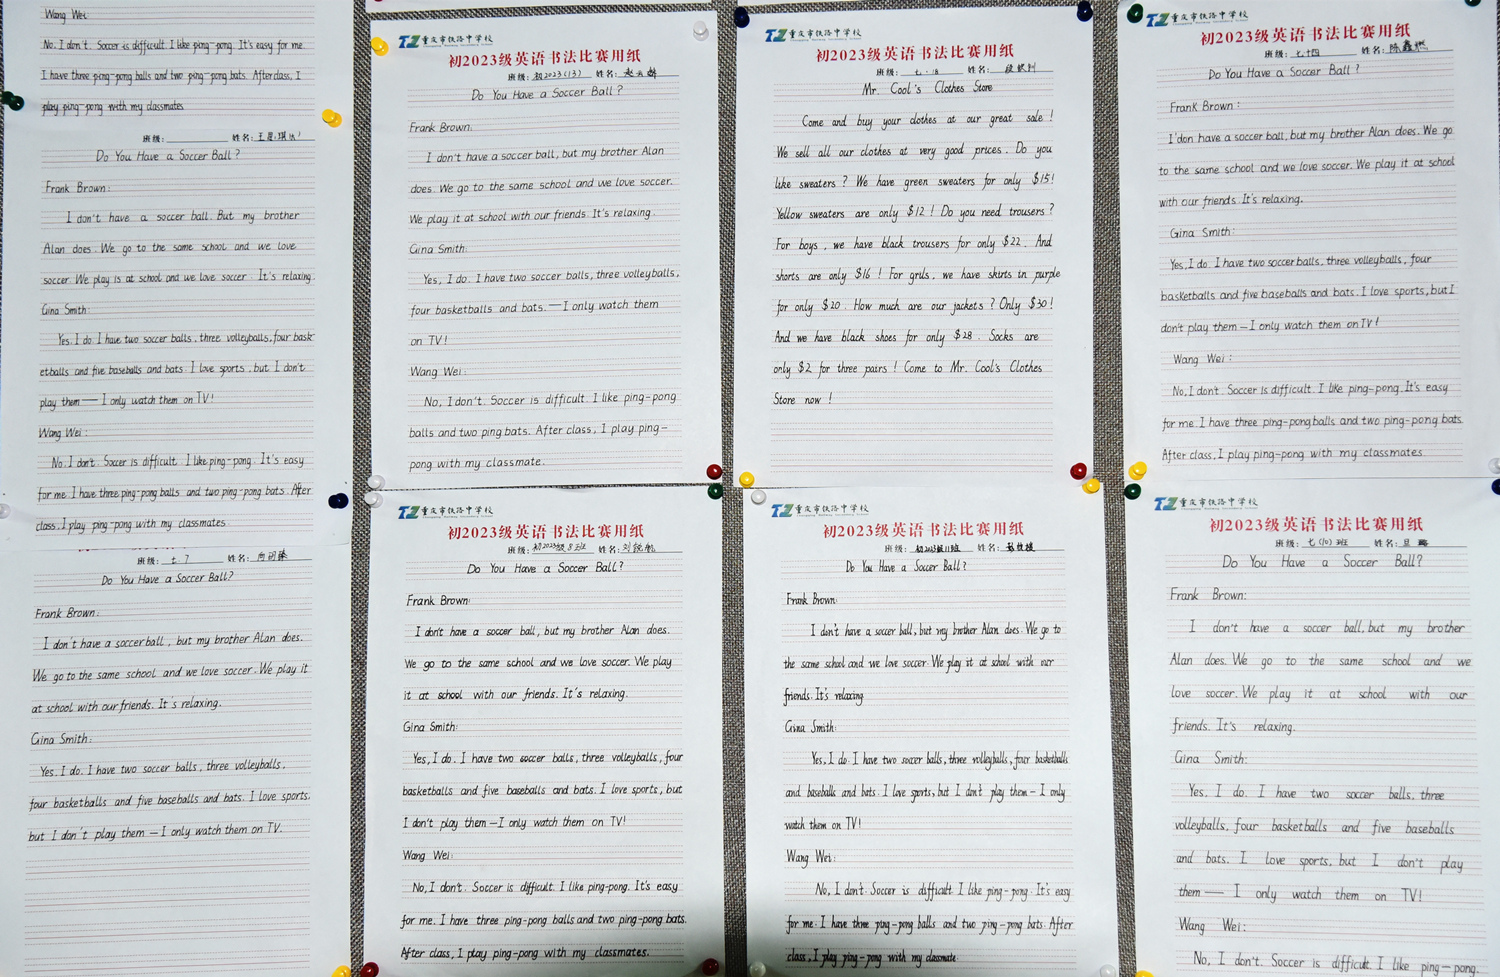 Wang Wei
No, I don't. Soccer is difficult. I like ping-pong. It's easy for me.
I have three ping-pong balls and two ping-pong bats. After class, I
play ping-pong with my classmates
班级: 姓名:
Do You Have a Soccer Ball?
Frank Brown:
I don't have a soccer ball. But my brother
Alan does. We go to the same school and we love
soccer. We play is at school and we love soccer. It's relaxing.
Gina Smith:
Yes, I do. I have two soccer balls, three volleyballs, four bask
etballs and five baseballs and bats. I love sports, but I don't
play them — I only watch them on TV!
Wang Wei:
No, I don't. Soccer is difficult. I like ping-pong. It's easy
for me. I have three ping-pong balls and two ping-pong bats. After
class, I play ping-pong with my classmates.
班级: 七.7 姓名:
Do You Have a Soccer Ball?
Frank Brown:
I don't have a soccer ball, but my brother Alan does.
We go to the same school and we love soccer. We play it
at school with our friends. It's relaxing.
Gina Smith:
Yes, I do. I have two soccer balls, three volleyballs,
four basketballs and five baseballs and bats. I love sports,
but I don't play them — I only watch them on TV.
TZ 重庆市铁路中学校
初2023级英语书法比赛用纸
班级: 初2023(13) 姓名:
Do You Have a Soccer Ball?
Frank Brown:
I don't have a soccer ball, but my brother Alan
does. We go to the same school and we love soccer.
We play it at school with our friends. It's relaxing.
Gina Smith:
Yes, I do. I have two soccer balls, three volleyballs,
four basketballs and bats. — I only watch them
on TV!
Wang Wei:
No, I don't. Soccer is difficult. I like ping-pong
balls and two ping bats. After class, I play ping-
pong with my classmate.
TZ 重庆市铁路中学校
初2023级英语书法比赛用纸
班级: 初2023级8班 姓名:
Do You Have a Soccer Ball?
Frank Brown:
I don't have a soccer ball, but my brother Alan does.
We go to the same school and we love soccer. We play
it at school with our friends. It's relaxing.
Gina Smith:
Yes, I do. I have two soccer balls, three volleyballs, four
basketballs and five baseballs and bats. I love sports, but
I don't play them — I only watch them on TV!
Wang Wei:
No, I don't. Soccer is difficult. I like ping-pong. It's easy
for me. I have three ping-pong balls and two ping-pong bats.
After class, I play ping-pong with my classmates.
TZ 重庆市铁路中学校
初2023级英语书法比赛用纸
班级: 七.18 姓名:
Mr. Cool's Clothes Store
Come and buy your clothes at our great sale!
We sell all our clothes at very good prices. Do you
like sweaters? We have green sweaters for only $15!
Yellow sweaters are only $12! Do you need trousers?
For boys, we have black trousers for only $22. And
shorts are only $16! For grils, we have skirts in purple
for only $20. How much are our jackets? Only $30!
And we have black shoes for only $28. Socks are
only $2 for three pairs! Come to Mr. Cool's Clothes
Store now!
TZ 重庆市铁路中学校
初2023级英语书法比赛用纸
班级: 初2023级11班 姓名:
Do You Have a Soccer Ball?
Frank Brown:
I don't have a soccer ball, but my brother Alan does. We go to
the same school and we love soccer. We play it at school with our
friends. It's relaxing
Gina Smith:
Yes, I do. I have two soccer balls, three volleyballs, four basketballs
and baseballs and bats. I love sports, but I don't play them — I only
watch them on TV!
Wang Wei:
No, I don't. Soccer is difficult. I like ping-pong. It's easy
for me. I have three ping-pong balls and two ping-pong bats. After
class, I play ping-pong with my classmate.
TZ 重庆市铁路中学校
初2023级英语书法比赛用纸
班级: 七十四 姓名: 陈鑫燃
Do You Have a Soccer Ball?
Frank Brown:
I'don have a soccer ball, but my brother Alan does. We go
to the same school and we love soccer. We play it at school
with our friends. It's relaxing.
Gina Smith:
Yes, I do. I have two soccer balls, three volleyballs, four
basketballs and five baseballs and bats. I love sports, but I
don't play them — I only watch them on TV!
Wang Wei:
No, I don't. Soccer is difficult. I like ping-pong. It's easy
for me. I have three ping-pong balls and two ping-pong bats.
After class, I play ping-pong with my classmates.
TZ 重庆市铁路中学校
初2023级英语书法比赛用纸
班级: 七(10)班 姓名:
Do You Have a Soccer Ball?
Frank Brown:
I don't have a soccer ball, but my brother
Alan does. We go to the same school and we
love soccer. We play it at school with our
friends. It's relaxing.
Gina Smith:
Yes, I do. I have two soccer balls, three
volleyballs, four basketballs and five baseballs
and bats. I love sports, but I don't play
them — I only watch them on TV!
Wang Wei:
No, I don't. Soccer is difficult. I like ping-pong.